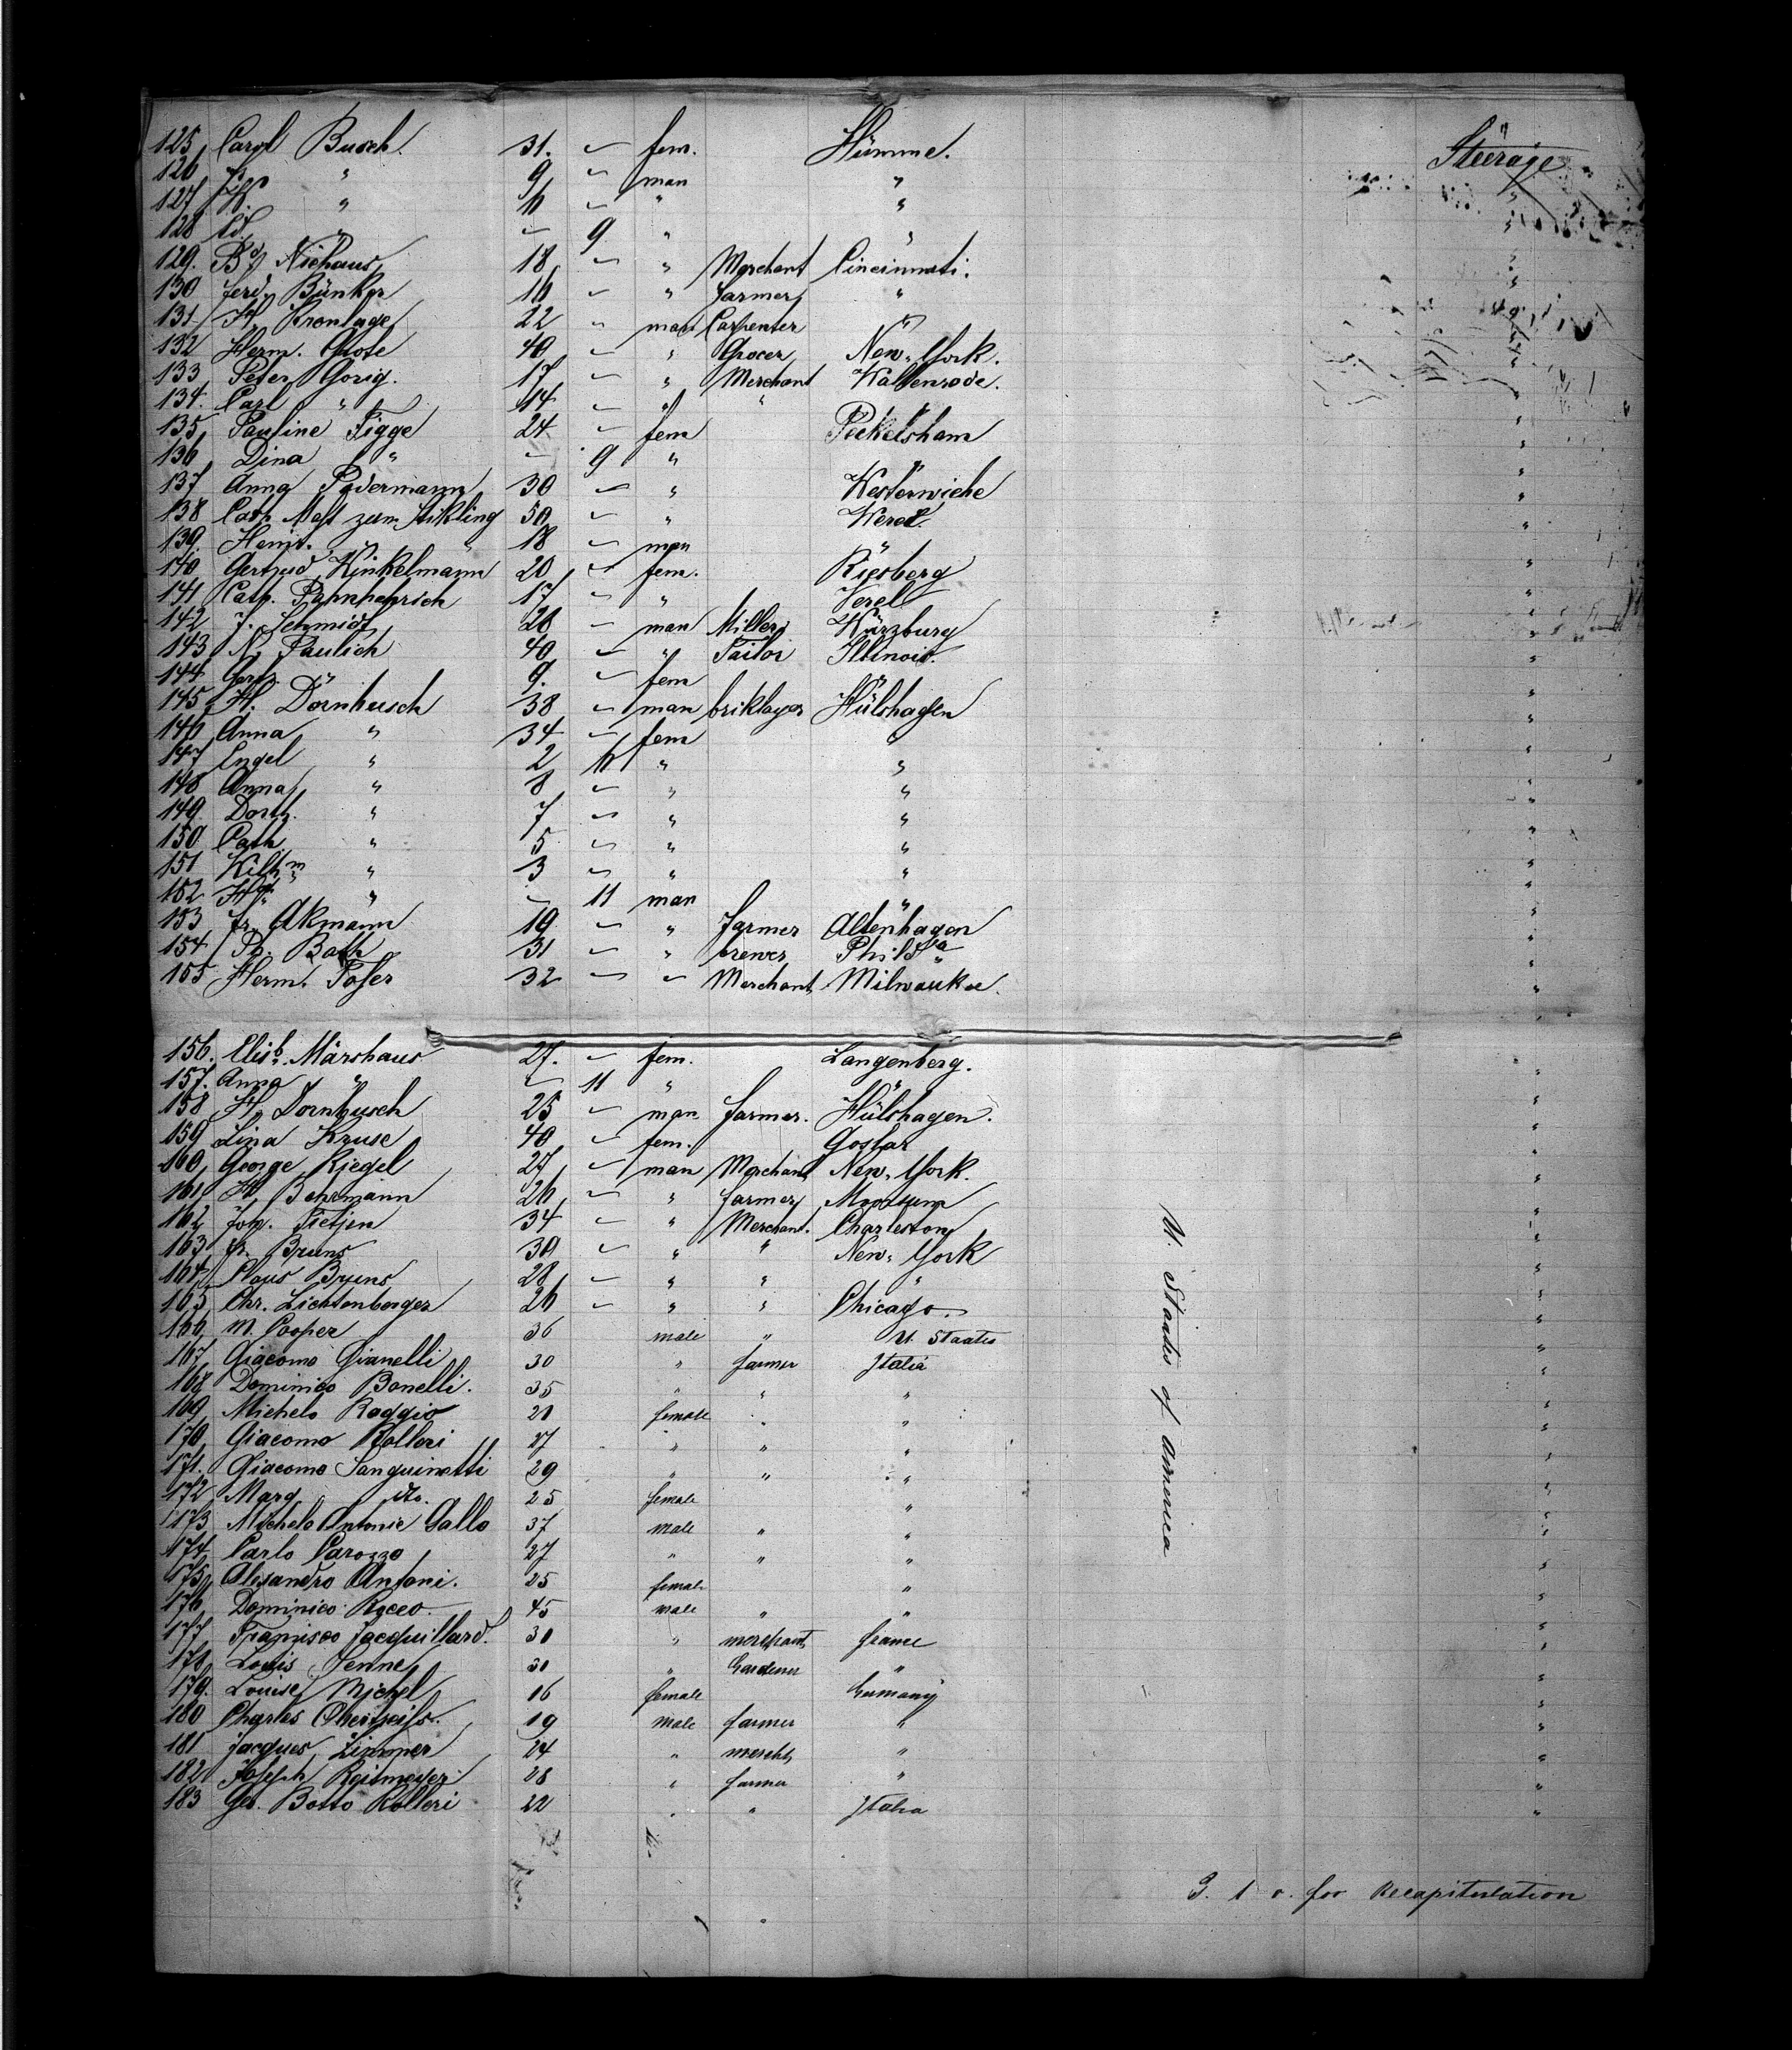 125 Carol Busch. 31. — fem. Hümme. Steerage
126 Fr. " 9 — man "
127 H. " 6 — " "
128 Ed. " — 9 " "
129. Bd. Niehaus 18 — " Merchant Cincinnati. "
130 Ferd. Bünker 16 — " farmer " "
131 H. Kronlage 22 " man Carpenter " "
132 Herm. Grote 40 — " Grocer New-York. "
133 Peter Gorig. 17 — " Merchant Wallenrode. "
134. Carl " 14 — " " "
135 Pauline Figge 24 — fem Peckelsham "
136 Dina " — 9 " " "
137 Anna Pedermann 30 — " Westerwiehe "
138 Cath. Mast zum Stikling 50 — " Werel. "
139. Heinr. " 18 — man " "
140 Gertrud Winkelmann 20 — fem. Riesberg "
141 Cath. Pahnhenrich 17 — " Verel "
142 J. Schmidt 20 — man Miller Würzburg "
143 N. Paulich 40 — " Tailor Illinois. "
144 Gert. " 9. — fem "
145 H. Dörnbusch 38 — man briklayer Hülshagen "
146 Anna " 34 — fem "
147 Engel " 2 6 " " "
148 Anna " 8 — " " "
149 Dorth. " 7 — " " "
150 Cath. " 5 — " " "
151 Wilhm " 3 — " " "
152 " — 11 man " "
153 Fr. Akmann 19 — " farmer Altenhagen "
154 Ph. Bath 31 — " brewer Philda "
155 Herm. Poser 32 — — Merchant Milwaukee. "
156. Elisb. Märshaus 27. — fem. Langenberg. "
157. Anna " — 11 " " "
158 H. Dornbusch 25 — man farmer. Hülshagen. "
159 Lina Kruse 40 — fem. Goslar "
160 George Riegel 27 — man Merchant New-York. "
161 H. Behrmann 26 — " farmer "
162 Joh. Tietjen 34 — " Merchant. Charleston "
163 Fr. Bruns 30 — " " New-York "
164 Claus Bruns 28 — " " " "
165 Chr. Lichtenberger 26 — " " Chicago. "
166 M. Cooper 36 male " U. Staates "
167 Giacomo Gianelli 30 " farmer Italia "
168 Dominico Bonelli. 35 " " " "
169 Michelo Raggio 20 female " " "
170 Giacomo Rolleri 27 " " " "
171. Giacomo Sanguinetti 29 " " " "
172 Marg do. 25 female " "
173 Michelo Antonie Gallo 37 male " " "
174 Carlo Carozzo 27 " " " "
175 Alesandro Antoni. 25 female " "
176 Dominico Rocco. 45 male " " "
177 Francisco Jacquillard. 30 " merchant france "
178 Louis Jenne 30 " Gardener " "
179. Louise Michel 16 female Germany "
180 Charles 19 male farmer " "
181 Jacques Zimmer 24 " mercht " "
182 Joseph Reitmeyer 28 " farmer " "
183 Geo. Botto Rolleri 22 " " Italia "
U. Staates of America
for Recapitulation